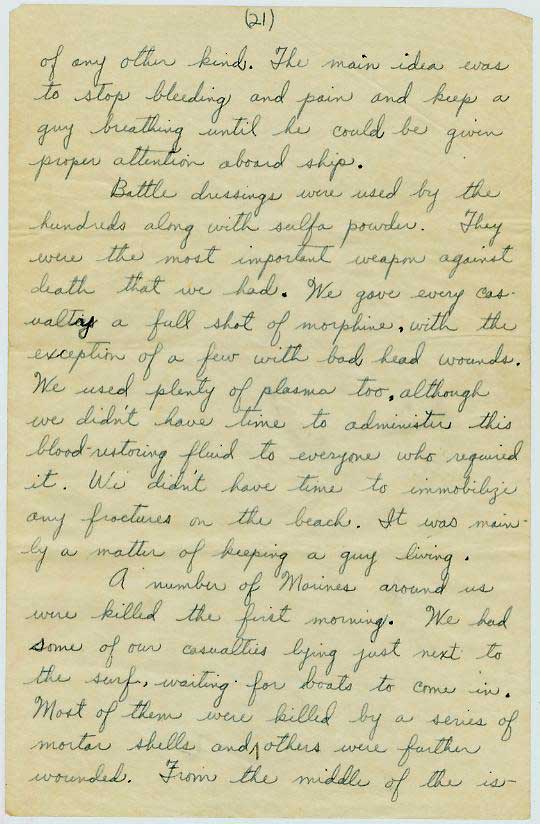 (21)
of any other kind. The main idea was
to stop bleeding and pain and keep a
guy breathing until he could be given
proper attention aboard ship.
Battle dressings were used by the
hundreds along with sulfa powder. They
were the most important weapon against
death that we had. We gave every cas-
ualty a full shot of morphine, with the
exception of a few with bad head wounds.
We used plenty of plasma too, although
we didn't have time to administer this
blood-restoring fluid to everyone who required
it. We didn't have time to immobilize
any fractures on the beach. It was main-
ly a matter of keeping a guy living.
A number of Marines around us
were killed the first morning. We had
some of our casualties lying just next to
the surf, waiting for boats to come in.
Most of them were killed by a series of
mortar shells and others were further
wounded. From the middle of the is-